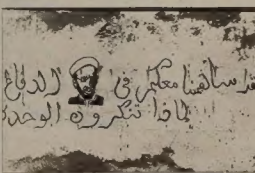 قد ساهمنا معكم في الدفاع
لماذا تنكرون الوحدة